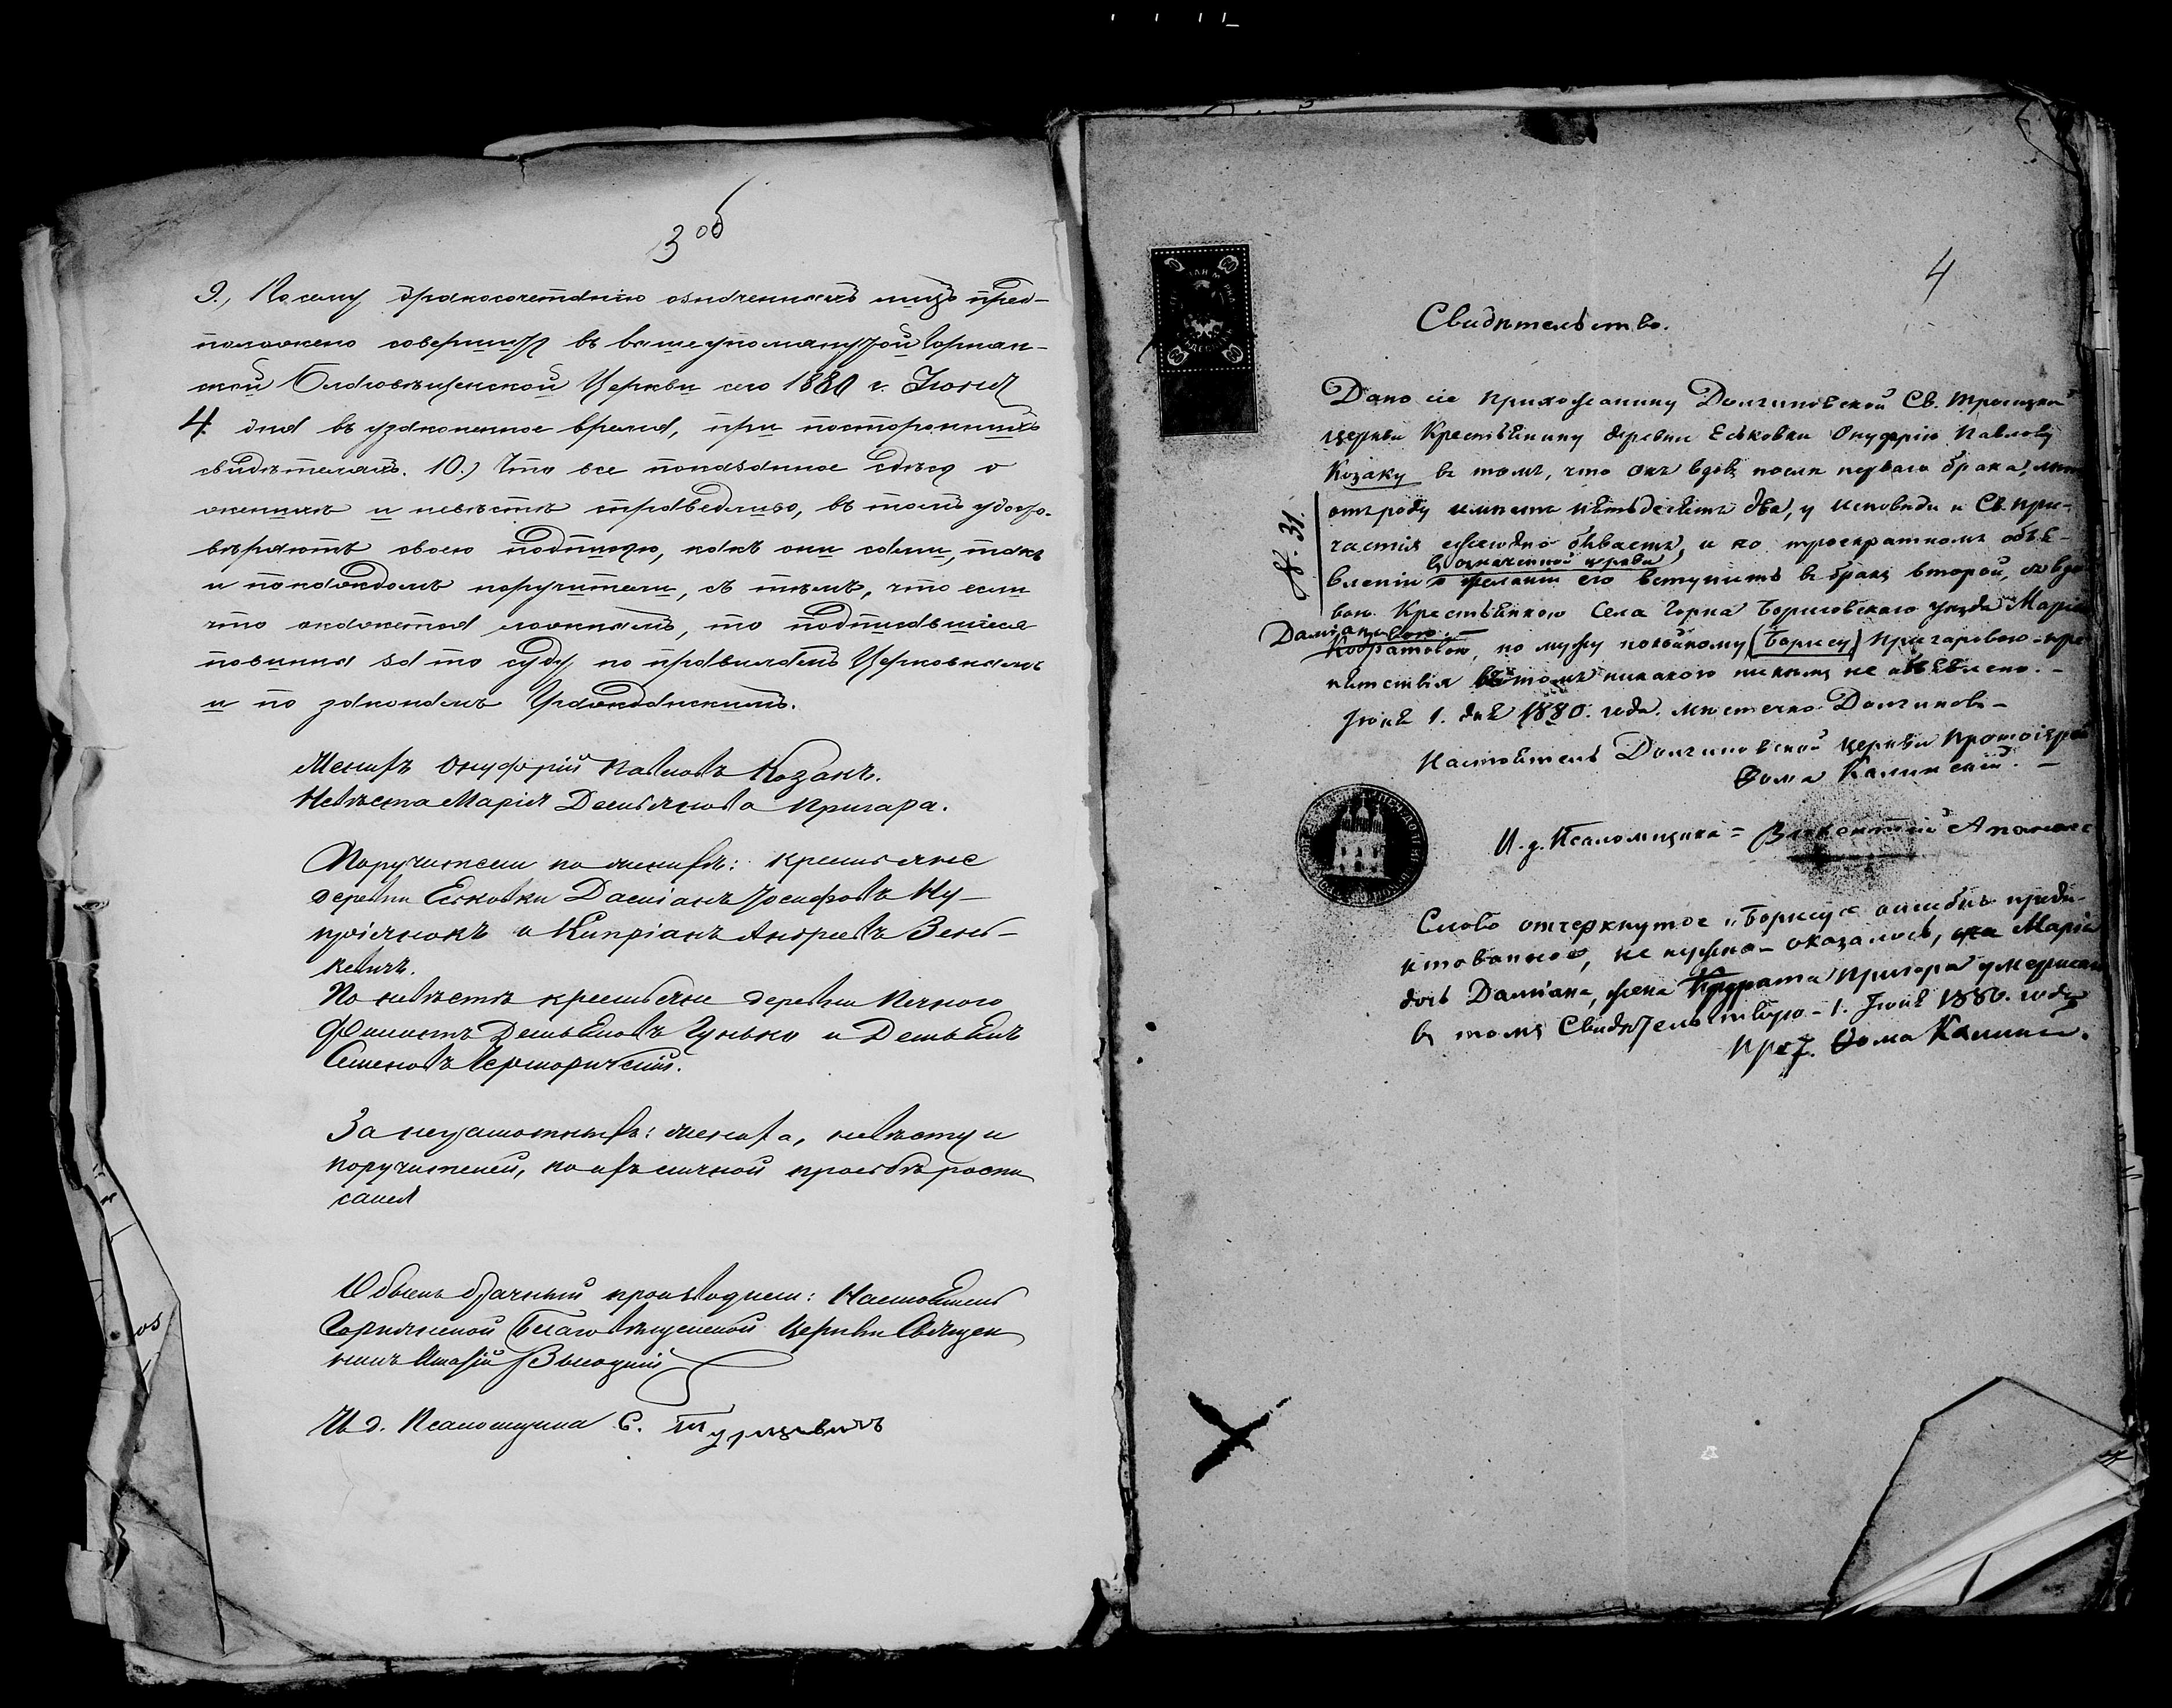 3 об
9., По сему бракосочетанію означенныхъ лицъ пред-
положено совершить въ вышеупомянутой Горнян-
ской Благовѣщенской Церкви сего 1880 г. Іюня
4 дня въ узаконенное время, при постороннихъ
свидѣтеляхъ. 10.) Что все показанное здѣсь о
женихѣ и невѣстѣ справедливо, въ томъ удосто-
вѣряютъ своею подписью, какъ они сами, такъ
и по каждомъ поручители, съ тѣмъ, что если
что окажется ложнымъ, то подписавшіеся
повинны за то суду по правиламъ Церковнымъ
и по законамъ Гражданскимъ.
Женихъ Онуфрій Павловъ Козакъ.
Невѣста Марія Демьянова Пригара.
Поручители по женихѣ: крестьяне
деревни Еськовки Даміанъ Іосифовъ Ку-
пріянокъ и Кипріанъ Андреевъ Зень-
кевичъ.
По невѣстѣ крестьяне деревни
Филиппъ Демьяновъ Гунько и Демьянъ
Семеновъ
За неграмотныхъ: жениха, невѣсту и
поручителей, по ихъ личной просьбѣ роспи
сался
Обыскъ брачный производили: Настоятель
Горнянской Благовѣщенской Церкви Священ
никъ
И д. Псаломщика С. Турцевичъ
4
Свидѣтельство.
Дано сіе прихожанину Долгиновской Св. Троицкой
церкви Крестьянину деревни Еськовки Онуфрію Павлову
Козаку въ томъ, что онъ вдовъ послѣ перваго брака,
отъ роду имѣетъ пятьдесятъ два, у исповѣди и Св. При-
частія ежегодно бываетъ, и по троекратномъ объя-
въ означенной церкви
вленіи о желаніи его вступить въ бракъ второй, со вдо
вою Крестьянкою Села Горна Борисовскаго уѣзда Маріею
№. 31.
Даміановою.-
Кодратовою, по мужу покойному (Борису) Пригаровою - пре
пятствія въ томъ никакого никѣмъ не объявлено. -
Іюня 1. дня 1880. года. мѣстечко Долгиновъ -
Настоятель Долгиновской церкви Протоіерей
Ѳома Калинскій. -
И. д. Псаломщика = Викентій
Слово отчеркнутое „Борису“ ошибкою
не нужно - оказалось, Марія
дочь Даміана, жена Кодрата Пригары умершаго
въ томъ Свидѣтельствую - 1. Іюня 1880. года
Прот. Ѳома Калинскій.